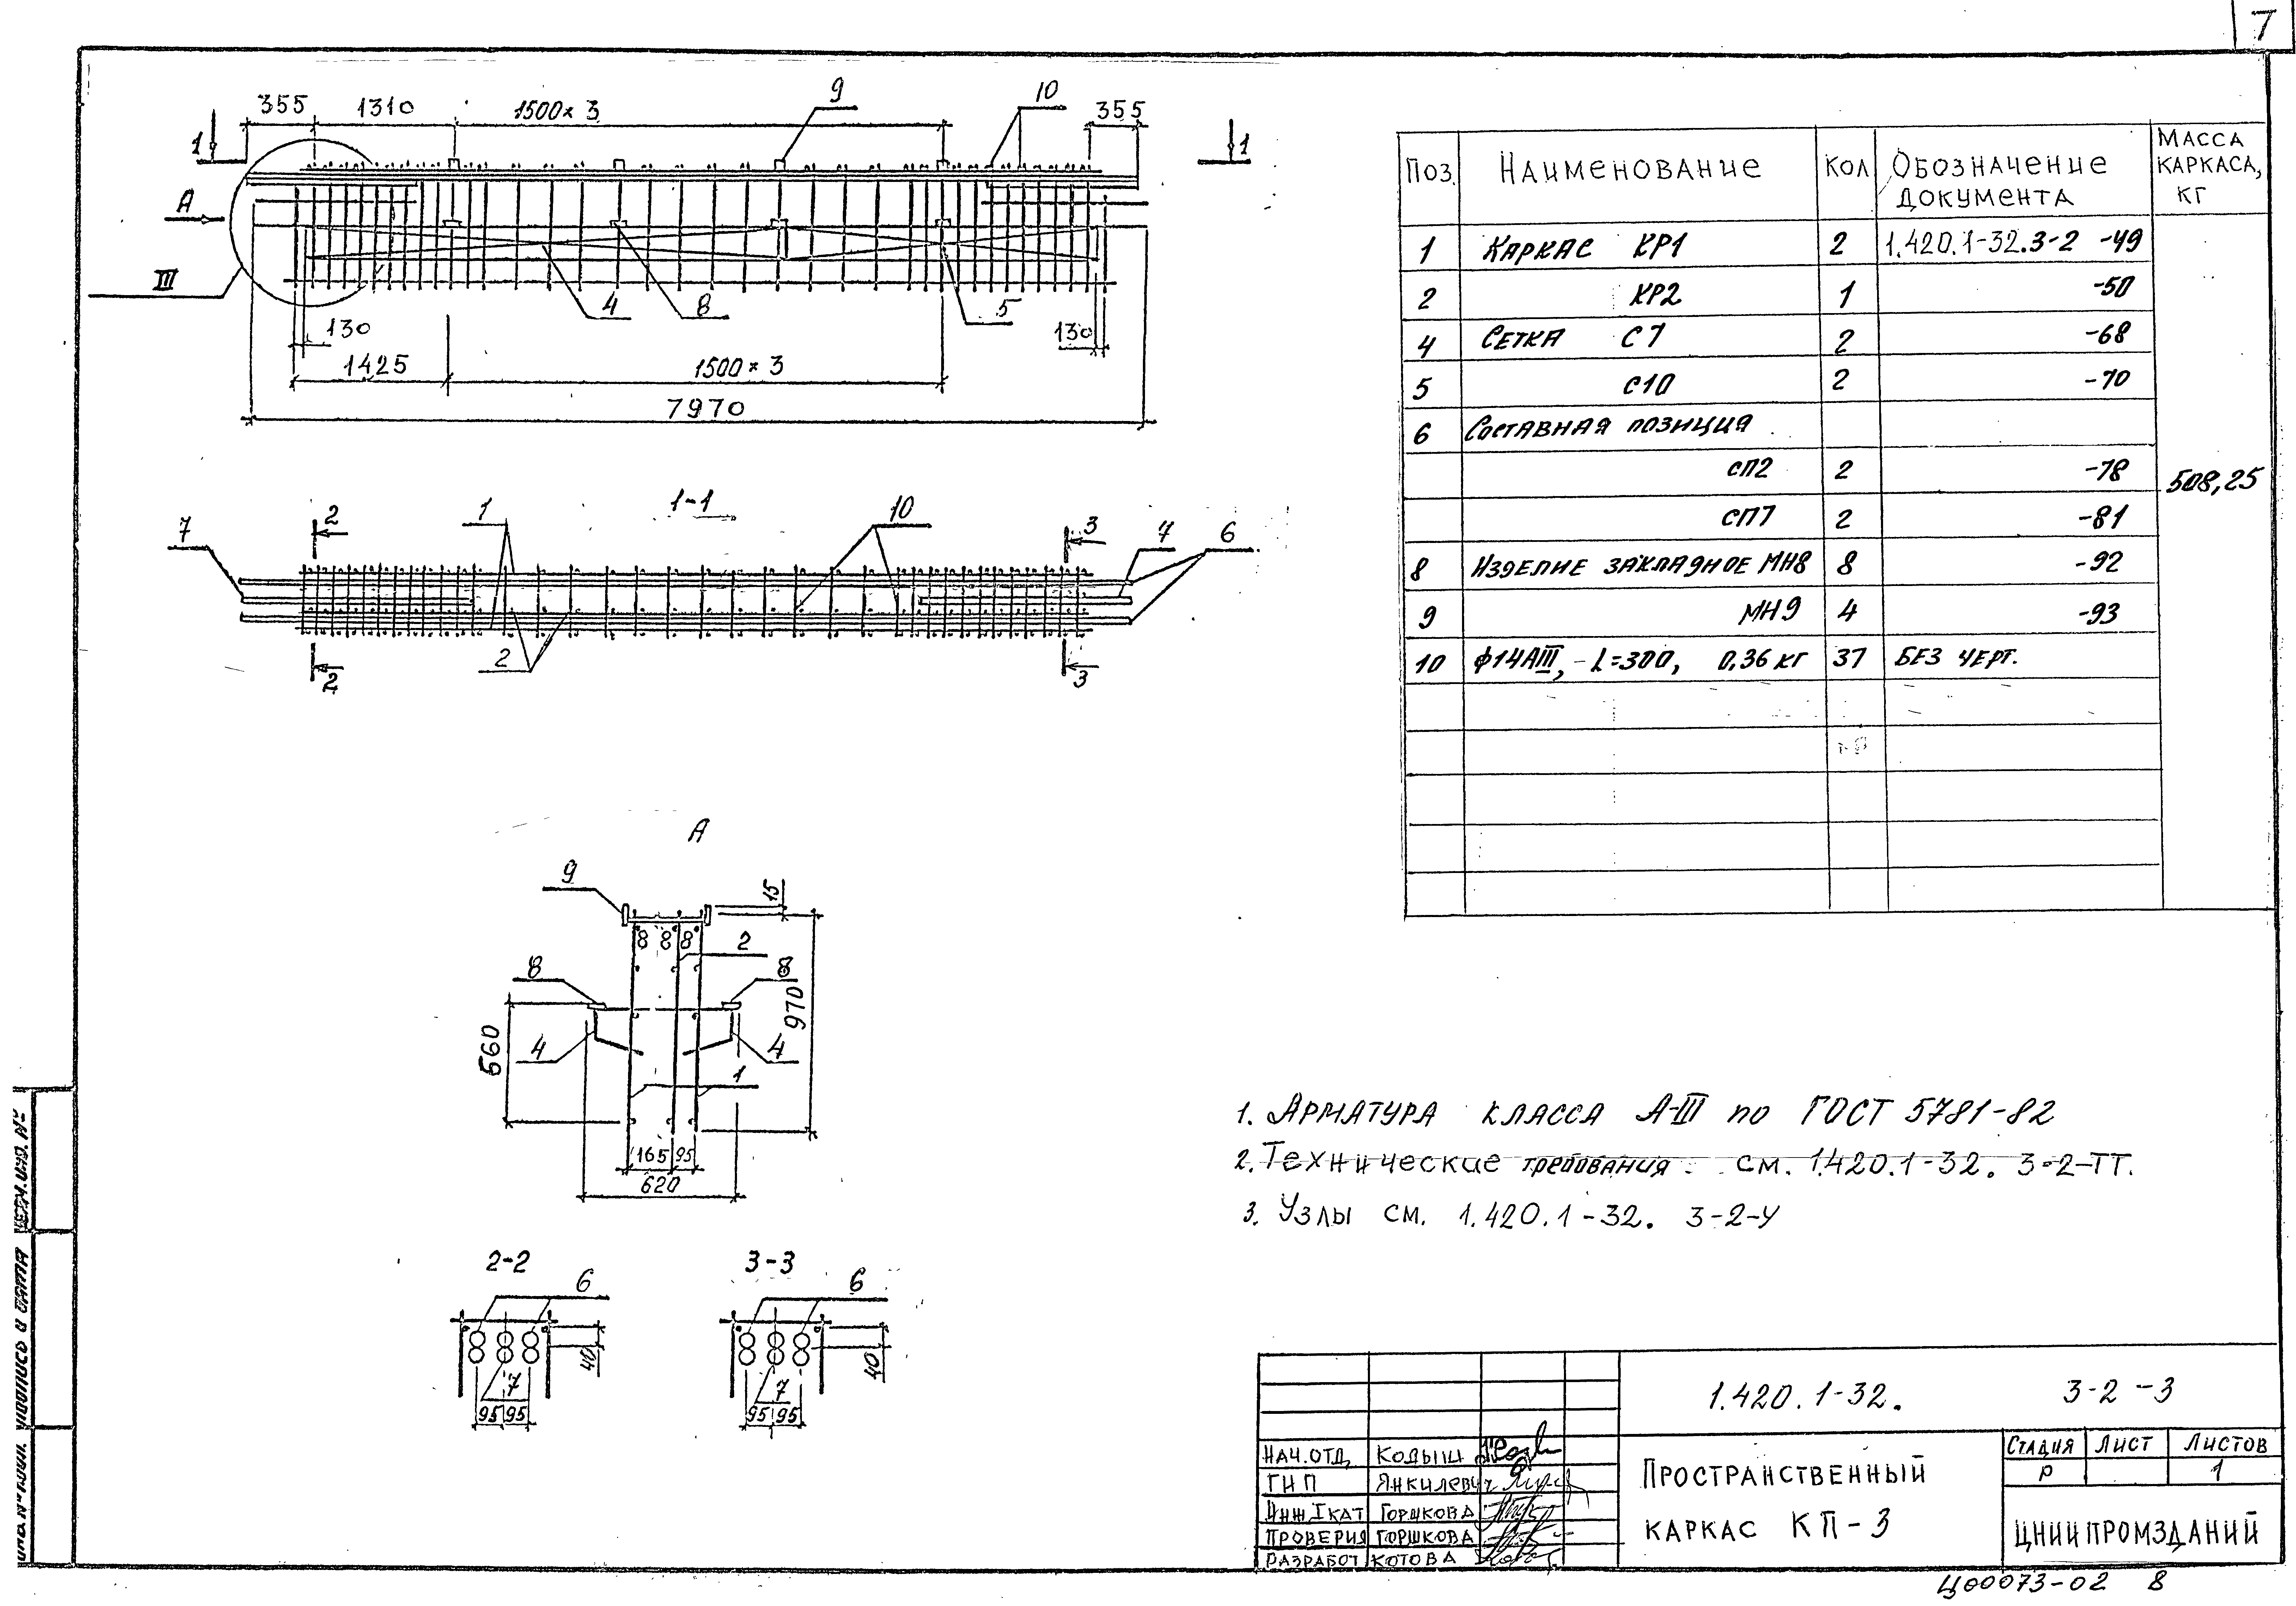 7
355 1310 1500×3 9 10 355
1 1
А
III
4 8 5
130 130
1425 1500×3
7970
1-1
7 2 1 10 3 7 6
2 2 3
А
9 15
8 8 8 2
8 8
970
560
4 4
1
165 95
620
2-2 3-3
6 6
40 40
7 7
95 95 95 95
Поз. Наименование Кол Обозначение документа Масса каркаса, кг
1 Каркас КР1 2 1.420.1-32.3-2 -49
2 КР2 1 -50
4 Сетка С7 2 -68
5 С10 2 -70
6 Составная позиция
СП2 2 -78
СП7 2 -81
508,25
8 Изделие закладное МН8 8 -92
9 МН9 4 -93
10 ф14АIII, L=300, 0,36 кг 37 без черт.
1. Арматура класса А-III по ГОСТ 5781-82
2. Технические требования см. 1.420.1-32. 3-2-ТТ.
3. Узлы см. 1.420.1-32. 3-2-У
1.420.1-32. 3-2-3
Нач.отд. Кодыш
ГИП Янкилевич
Инж.I кат Горшкова
Проверил Горшкова
Разработ Котова
Пространственный
каркас КП-3
Стадия Лист Листов
Р 1
ЦНИИПРОМЗДАНИЙ
Ц00073-02 8
Взам.инв.№
Подпись и дата